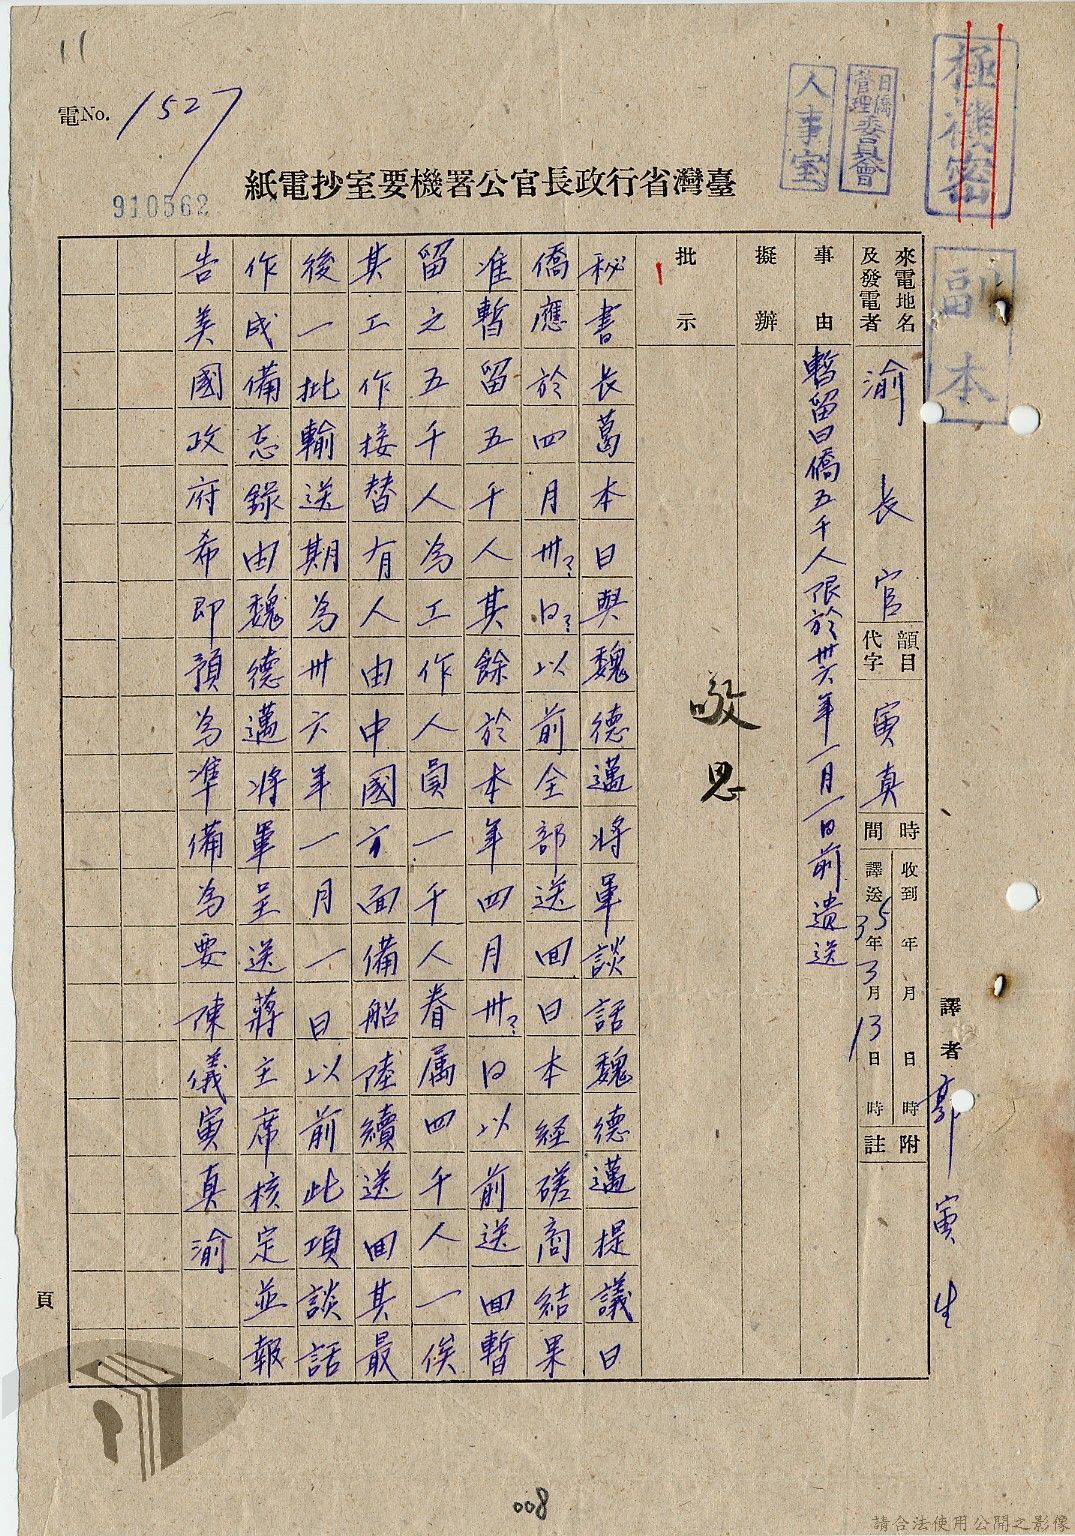 11
電No. 1527
910562
人事室
日僑管理委員會
極機密
副本
臺灣省行政長官公署機要室抄電紙
來電地名及發電者
渝 長官
韻目代字
寅真
時間
收到 年 月 日 時
譯送 35年3月13日 時
附註
譯者 郭寅生
事由
暫留日僑五千人限於卅六年一月一日前遣送
擬辦
批示
秘書長葛本日與魏德邁將軍談話魏德邁提議日
僑應於四月卅日以前全部送回日本經磋商結果
准暫留五千人其餘於本年四月卅日以前送回暫
留之五千人為工作人員一千人眷属四千人一俟
其工作接替有人由中國方面備船陸續送回其最
後一批輸送期為卅六年一月一日以前此項談話
作成備忘錄由魏德邁將軍呈送蔣主席核定並報
告美國政府希即預為準備為要陳儀寅真渝
頁
008
請合法使用公開之影像